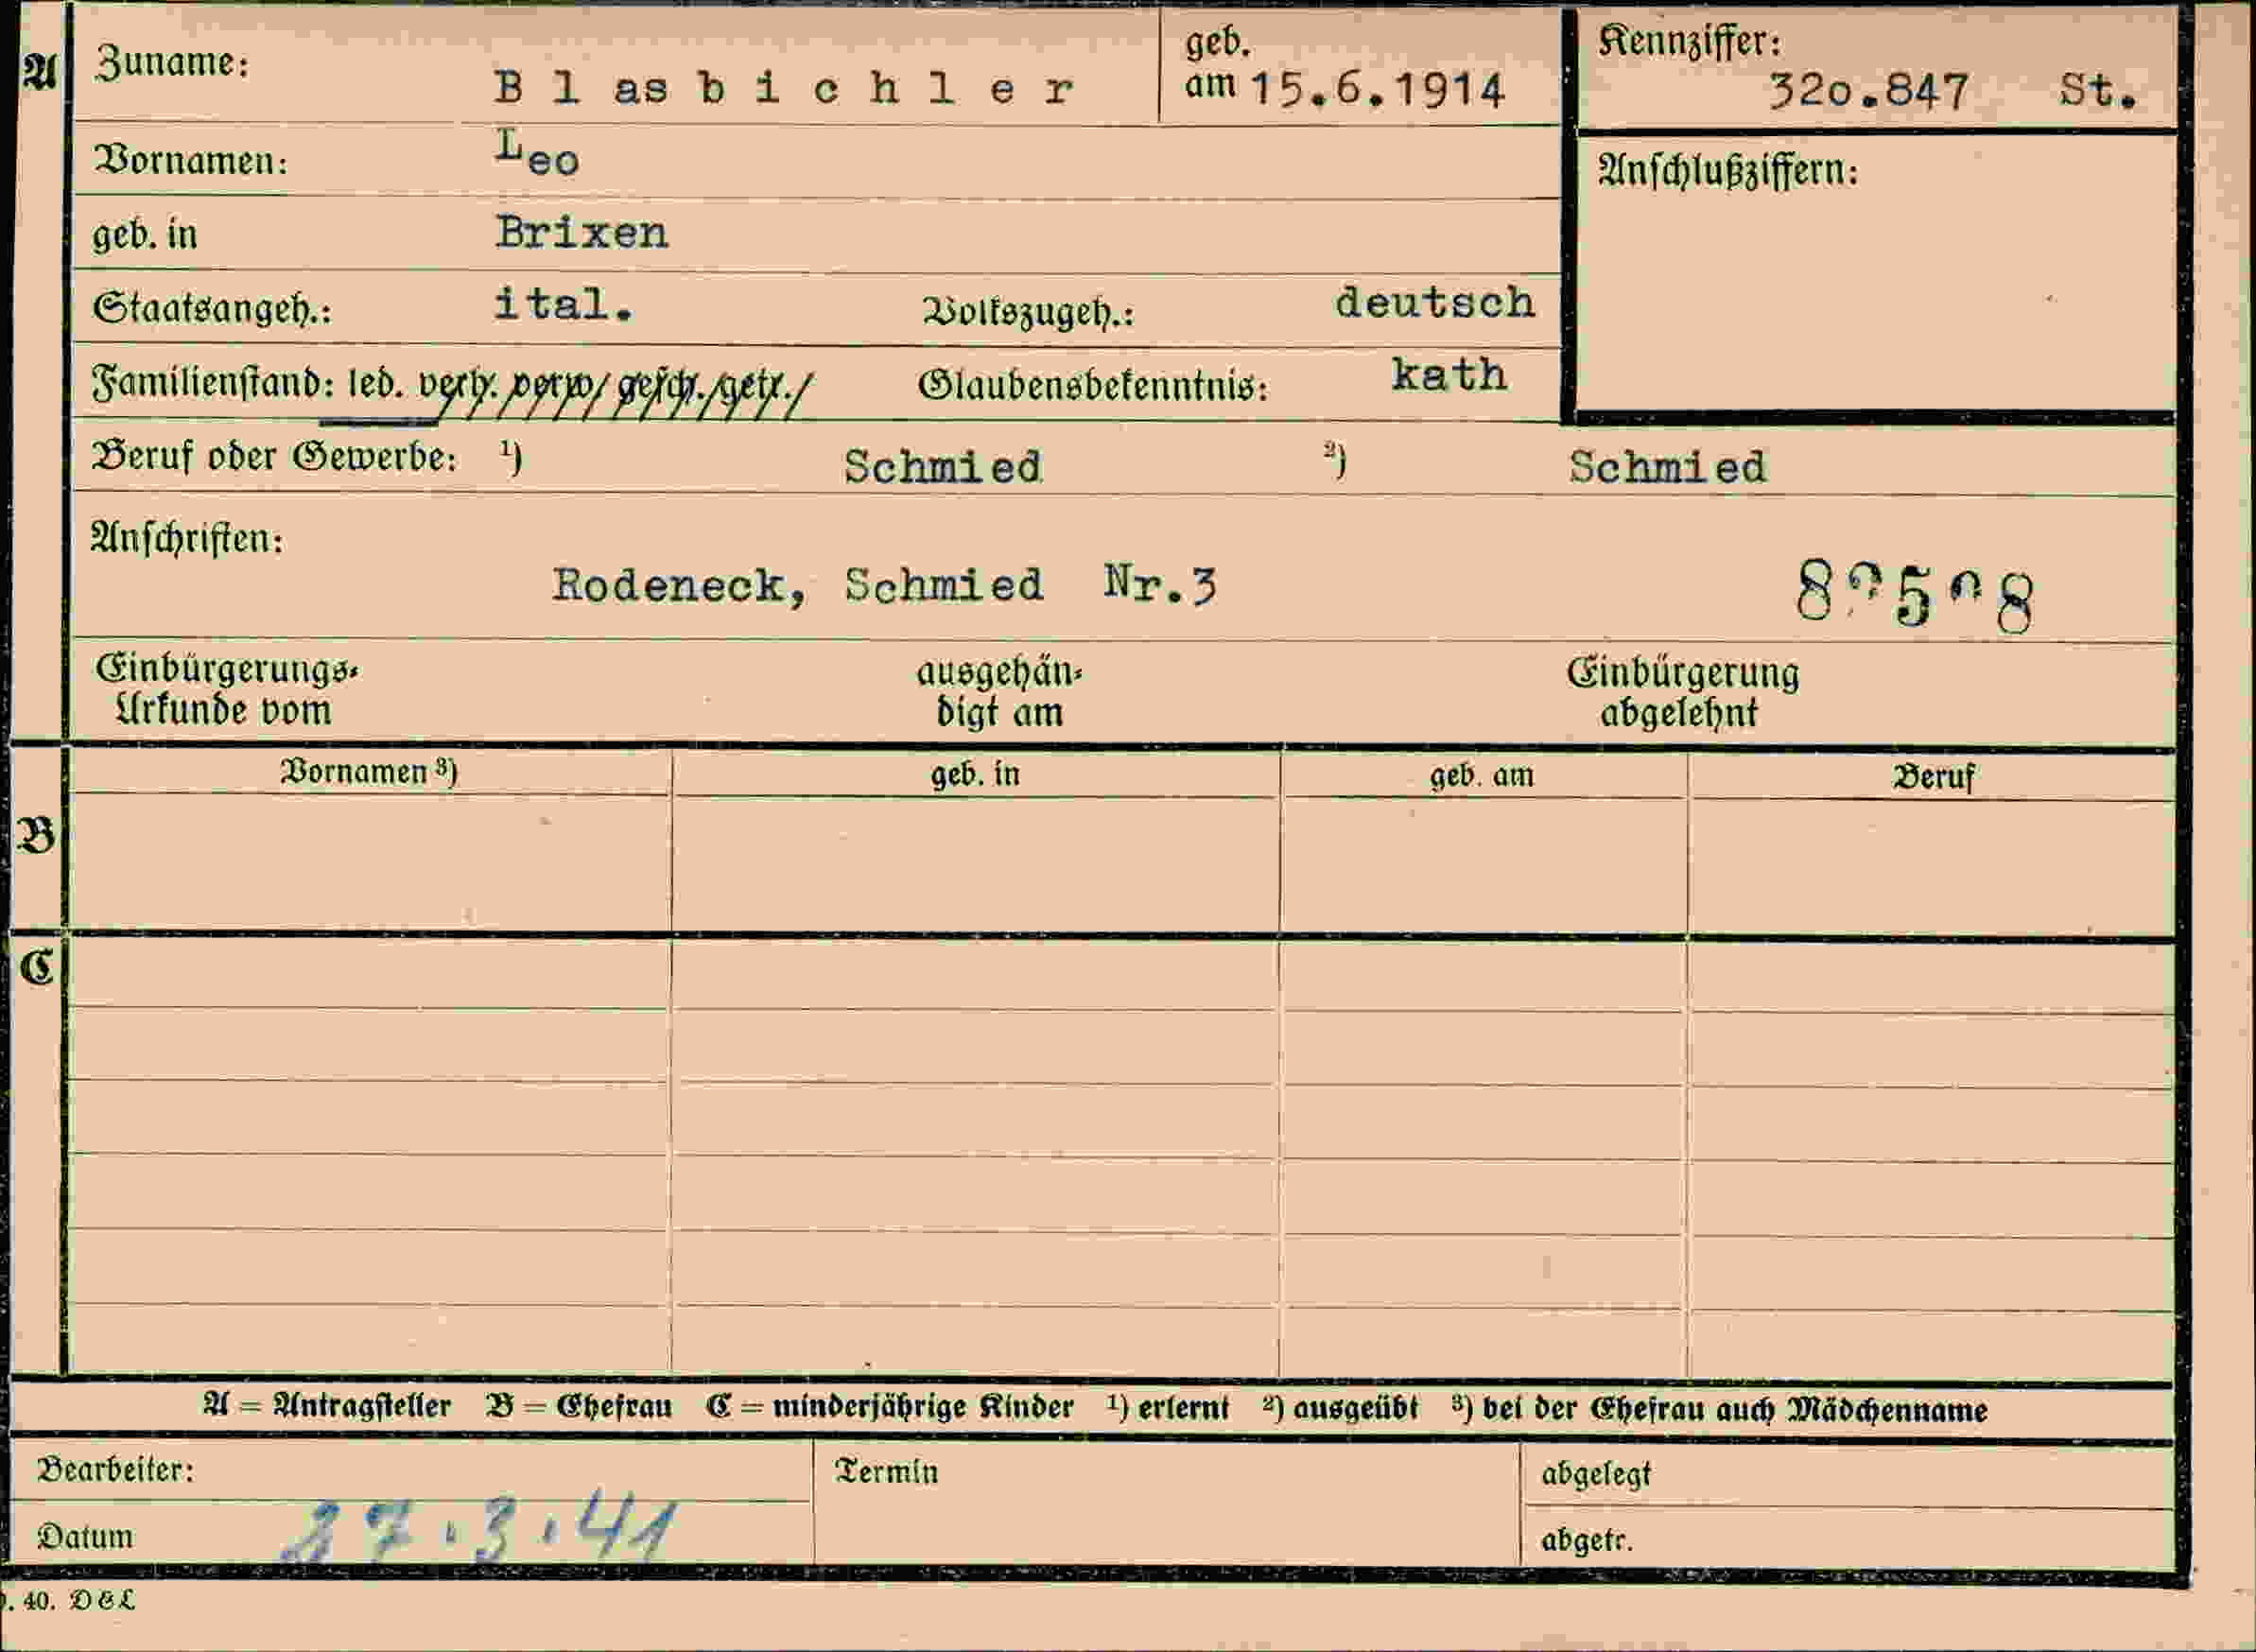 A Zuname: B l as b i c h l e r geb. am 15.6.1914 Kennziffer: 32o.847 St.
Vornamen: Leo Anschlußziffern:
geb. in Brixen
Staatsangeh.: ital. Volkszugeh.: deutsch
Familienstand: led. verh. verw. gesch. getr. Glaubensbekenntnis: kath
Beruf oder Gewerbe: ¹) Schmied ²) Schmied
Anschriften:
Rodeneck, Schmied Nr.3
Einbürgerungs- ausgehän- Einbürgerung
Urkunde vom digt am abgelehnt
Vornamen ³) geb. in geb. am Beruf
B
C
A = Antragsteller B = Ehefrau C = minderjährige Kinder ¹) erlernt ²) ausgeübt ³) bei der Ehefrau auch Mädchenname
Bearbeiter: Termin abgelegt
Datum 27.3.41 abgetr.
. 40. D & L